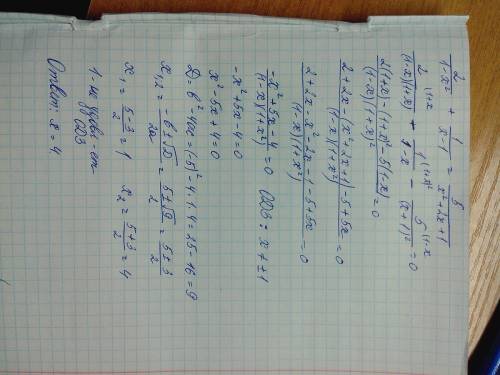 2/(1-x²) + 1/(x-1) = 5/(x²+2x+1)
2^{\1+x}/((1-x)(1+x)) - 1^{\(1+x)²}/(1-x) - 5^{\1-x}/(x+1)² = 0
(2(1+x)-(1+x)²-5(1-x))/((1-x)(1+x)²) = 0
(2+2x-(x²+2x+1)-5+5x)/((1-x)(1+x²)) = 0
(2+2x-x²-2x-1-5+5x)/((1-x)(1+x²)) = 0
(-x²+5x-4)/((1-x)(1+x²)) = 0 ОДЗ: x ≠ ±1
-x²+5x-4=0
x²-5x+4=0
D = b²-4ac = (-5)²-4·1·4 = 25-16 = 9
x₁,₂ = (-b±√D)/2a = (5±√9)/2 = (5±3)/2
x₁ = (5-3)/2 = 1 x₂ = (5+3)/2 = 4
1-не удовл-ет
ОДЗ
Ответ: x = 4